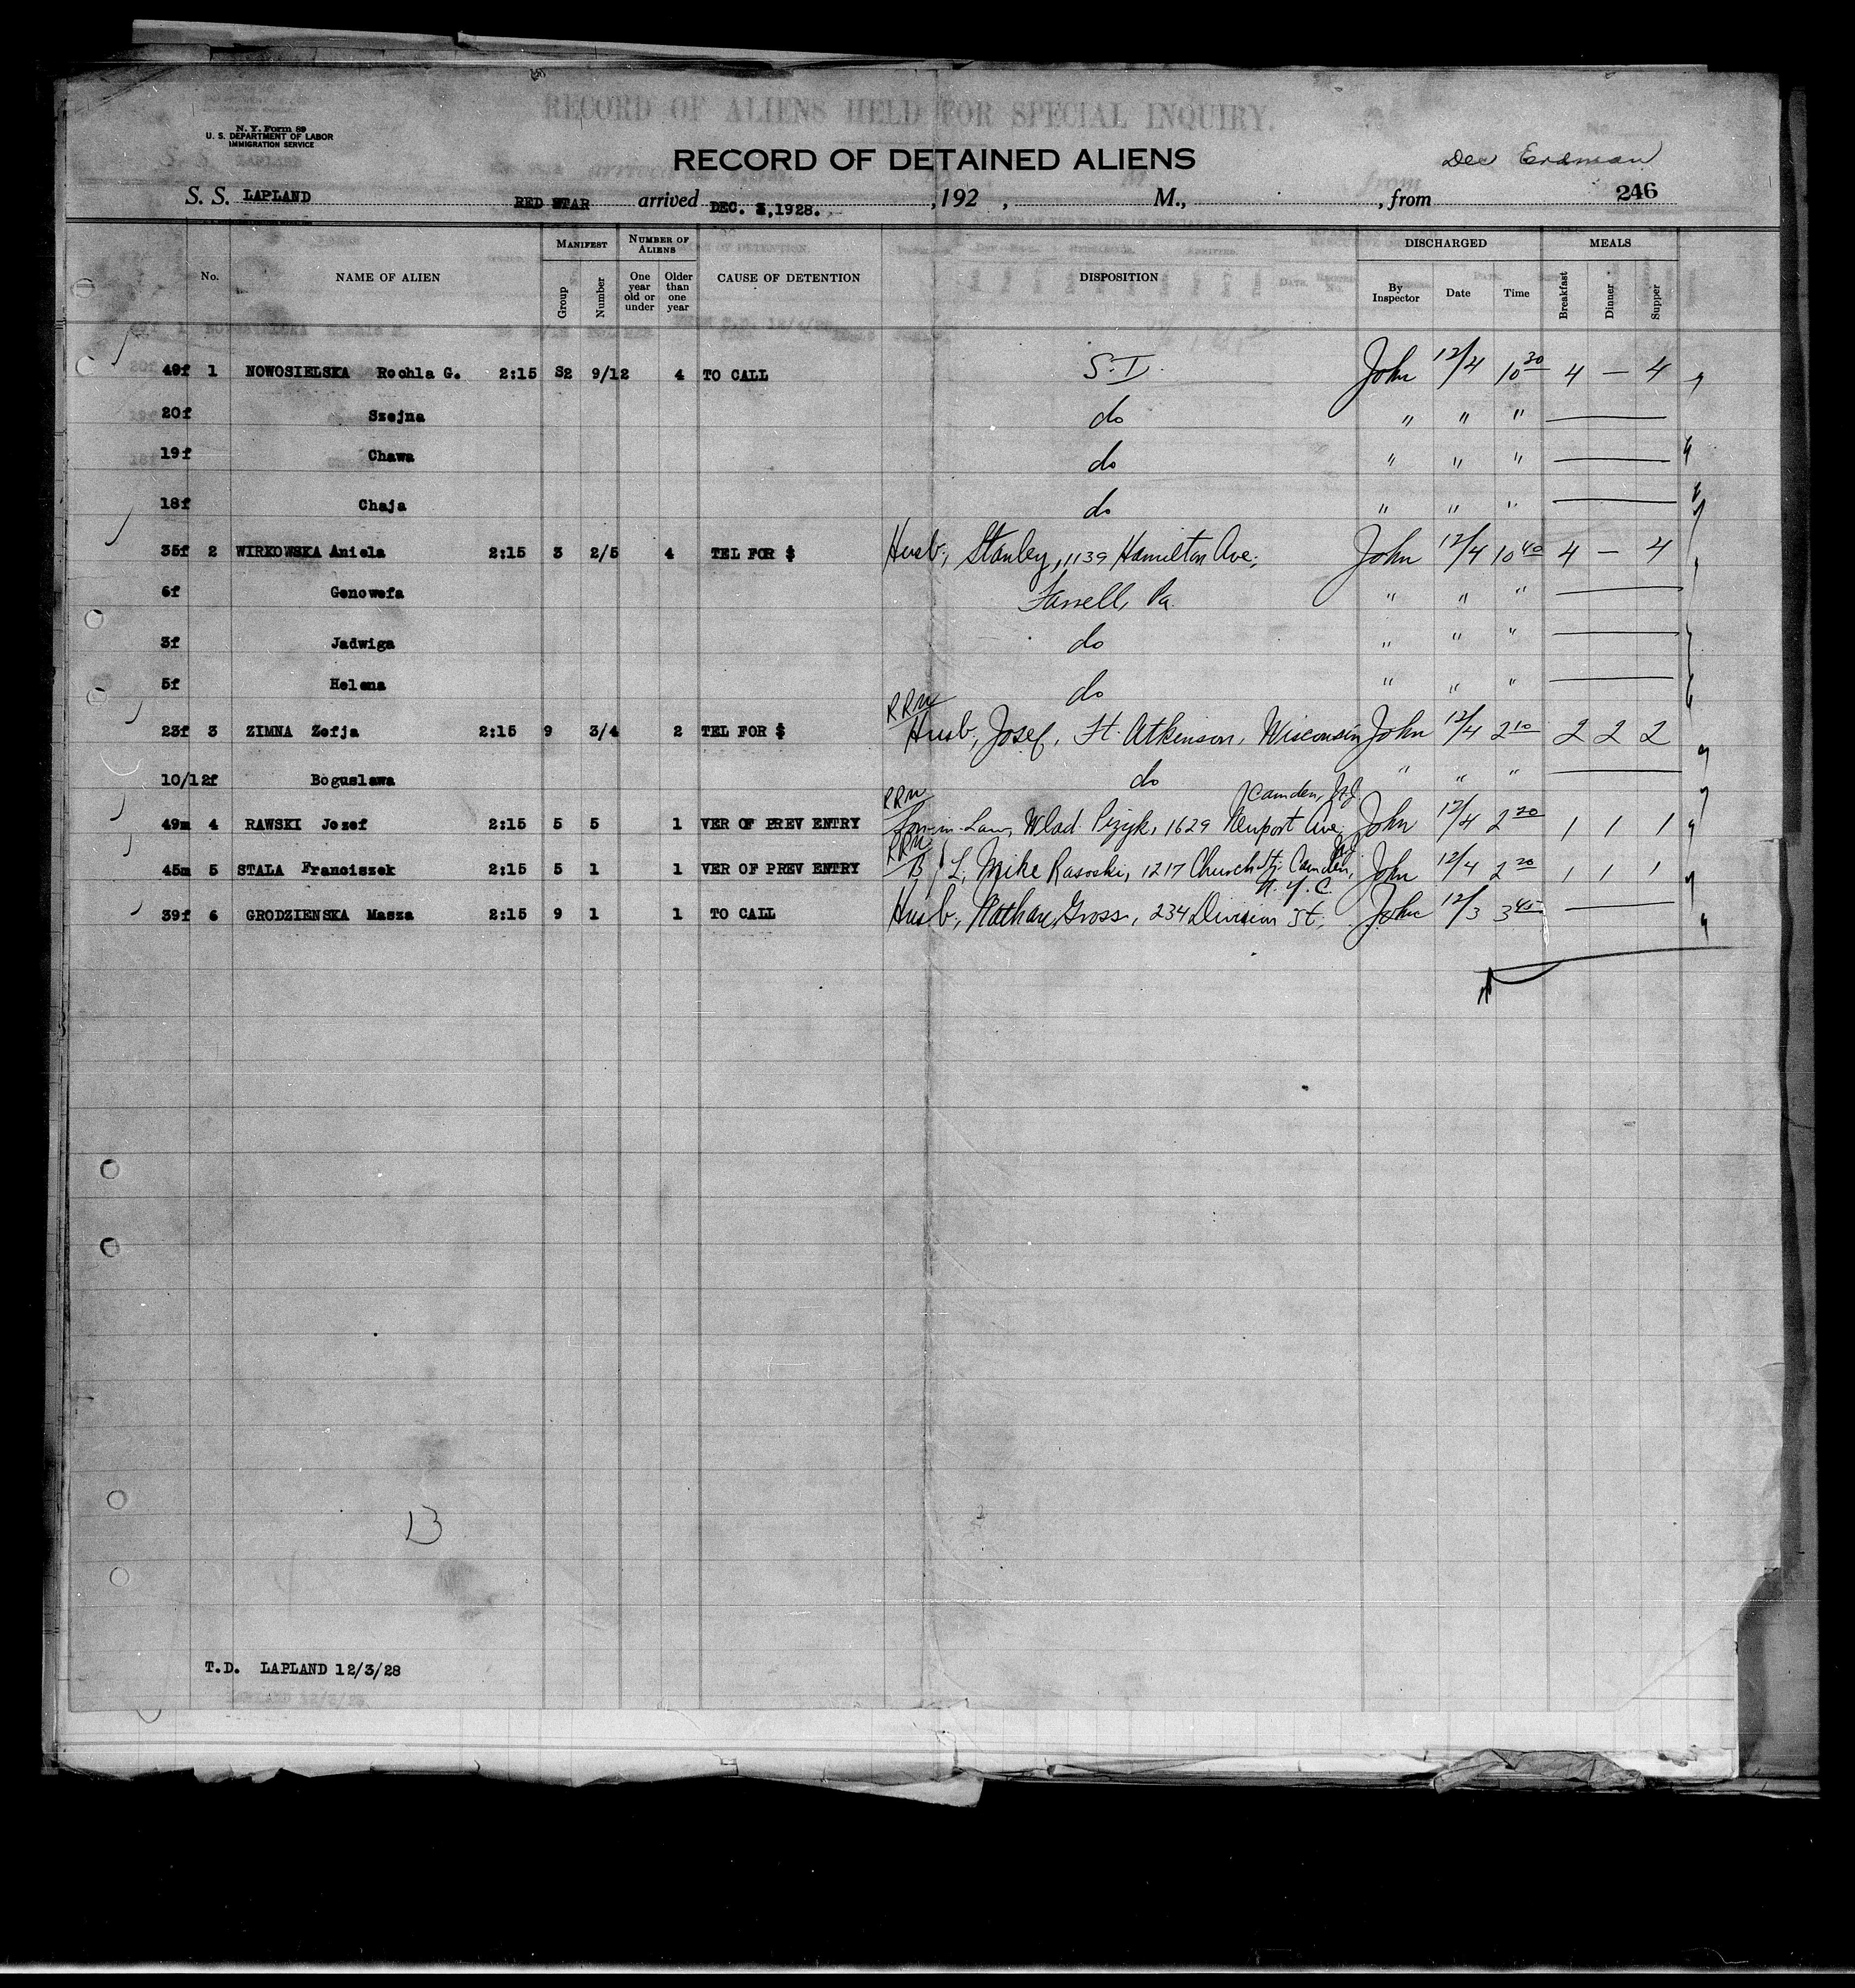 N. Y. Form 89
U. S. DEPARTMENT OF LABOR
IMMIGRATION SERVICE
RECORD OF ALIENS HELD FOR SPECIAL INQUIRY.
RECORD OF DETAINED ALIENS
Dec Erdman
S. S. LAPLAND RED STAR arrived DEC. 3, 1928. , 192 , M., , from 246
No. NAME OF ALIEN MANIFEST Group Number NUMBER OF ALIENS One year old or under Older than one year CAUSE OF DETENTION DISPOSITION DISCHARGED By Inspector Date Time MEALS Breakfast Dinner Supper
49f 1 NOWOSIELSKA Rochla G. 2:15 S2 9/12 4 TO CALL S.I. John 12/4 10 30 4 — 4
20f Szejna do " " "
19f Chawa do " " "
18f Chaja do " " "
35f 2 WIRKOWSKA Aniela 2:15 3 2/5 4 TEL FOR $ Husb, Stanley, 1139 Hamilton Ave, John 12/4 10 40 4 — 4
6f Genowefa Farrell, Pa. " " "
3f Jadwiga do " " "
5f Helena do " " "
RRM
23f 3 ZIMNA Zofja 2:15 9 3/4 2 TEL FOR $ Husb, Josef, Ft. Atkinson, Wisconsin John 12/4 2 10 2 2 2
10/12f Boguslawa do " " "
RRM Camden, N.J.
49m 4 RAWSKI Jozef 2:15 5 5 1 VER OF PREV ENTRY Son-in-Law, Wlad. 1629 Newport Ave, John 12/4 2 20 1 1 1
RRM N.J.
45m 5 STALA Franciszek 2:15 5 1 1 VER OF PREV ENTRY B/L, Mike Rasoski, 1217 Church St, Camden, John 12/4 2 20 1 1 1
N.Y.C.
39f 6 GRODZIENSKA Masza 2:15 9 1 1 TO CALL Husb, Nathan Gross, 234 Division St, John 12/3 3 45
13
T.D. LAPLAND 12/3/28